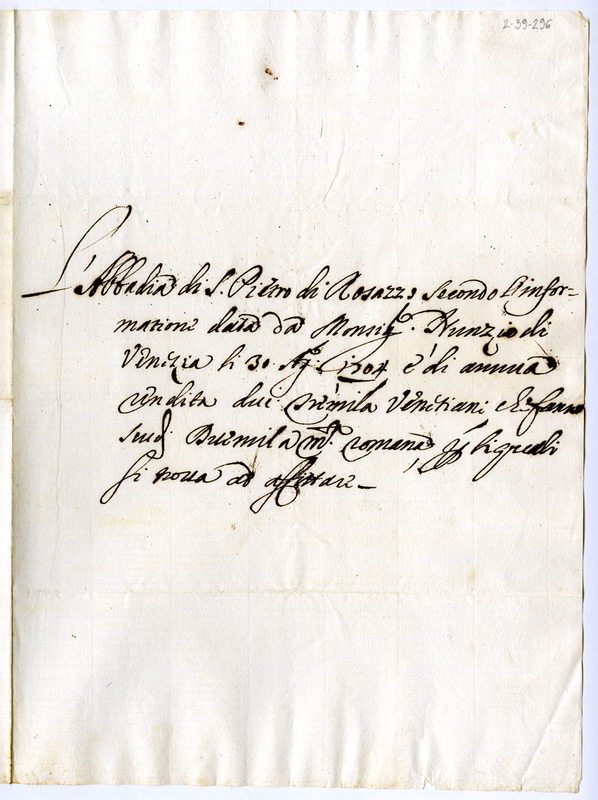 2-39-296
L'Abbadia di S. Pietro di Rosazzo secondo l'infor=
matione data da Monsigr. Nunzio di
Venezia li 30 Agto. 1704 è di annua
rendita duc. tremila Venetiani che fanno
scudi Duemila mta. romana, per li quali
si trova ad affittare_